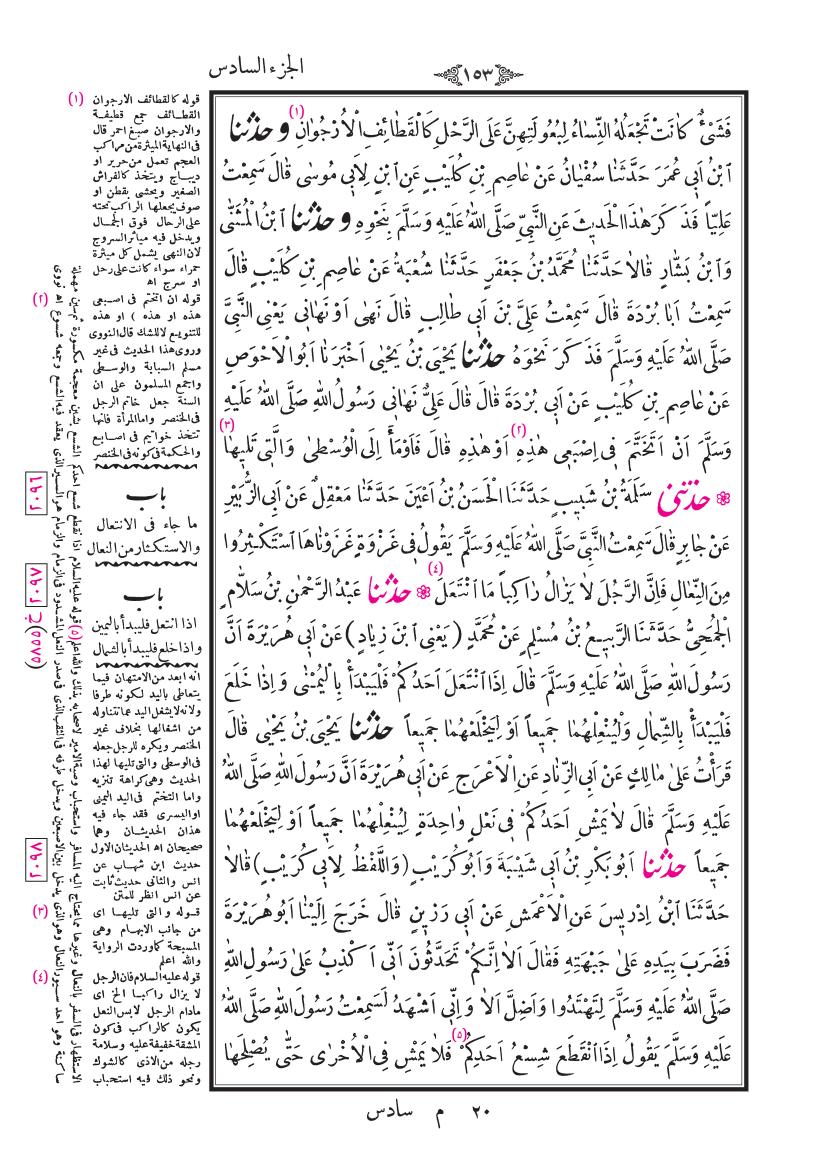 الجزء السادس
١٥٣
فَشَىْءٌ كَانَتْ تَجْعَلُهُ النِّسَاءُ لِبُعُولَتِهِنَّ عَلَى الرَّحْلِ كَالْقَطَائِفِ الْأُرْجُوَانِ (١) و حدثنا
ابْنُ اَبِى عُمَرَ حَدَّثَنَا سُفْيَانُ عَنْ عَاصِمِ بْنِ كُلَيْبٍ عَنِ ابْنٍ لِاَبِى مُوسٰى قَالَ سَمِعْتُ
عَلِيًّا فَذَكَرَ هٰذَا الْحَدِيثَ عَنِ النَّبِيِّ صَلَّى اللهُ عَلَيْهِ وَسَلَّمَ بِنَحْوِهِ و حدثنا ابْنُ الْمُثَنّٰى
وَابْنُ بَشَّارٍ قَالَا حَدَّثَنَا مُحَمَّدُ بْنُ جَعْفَرٍ حَدَّثَنَا شُعْبَةُ عَنْ عَاصِمِ بْنِ كُلَيْبٍ قَالَ
سَمِعْتُ اَبَا بُرْدَةَ قَالَ سَمِعْتُ عَلِىَّ بْنَ اَبِى طَالِبٍ قَالَ نَهٰى اَوْ نَهَانِى يَعْنِى النَّبِىَّ
صَلَّى اللهُ عَلَيْهِ وَسَلَّمَ فَذَكَرَ نَحْوَهُ حدثنا يَحْيَى بْنُ يَحْيٰى اَخْبَرَنَا اَبُو الْاَحْوَصِ
عَنْ عَاصِمِ بْنِ كُلَيْبٍ عَنْ اَبِى بُرْدَةَ قَالَ قَالَ عَلِىٌّ نَهَانِى رَسُولُ اللهِ صَلَّى اللهُ عَلَيْهِ
وَسَلَّمَ اَنْ اَتَخَتَّمَ فِى اِصْبَعِى هٰذِهِ اَوْ هٰذِهِ (٢) قَالَ فَاَوْمَأَ اِلَى الْوُسْطٰى وَالَّتِى تَلِيهَا (٣)
❁ حدثنى سَلَمَةُ بْنُ شَبِيبٍ حَدَّثَنَا الْحَسَنُ بْنُ اَعْيَنَ حَدَّثَنَا مَعْقِلٌ عَنْ اَبِى الزُّبَيْرِ
عَنْ جَابِرٍ قَالَ سَمِعْتُ النَّبِىَّ صَلَّى اللهُ عَلَيْهِ وَسَلَّمَ يَقُولُ فِى غَزْوَةٍ غَزَوْنَاهَا اسْتَكْثِرُوا
مِنَ النِّعَالِ فَاِنَّ الرَّجُلَ لَا يَزَالُ رَاكِباً مَا انْتَعَلَ (٤) ❁ حدثنا عَبْدُ الرَّحْمٰنِ بْنُ سَلَّامٍ
الْجُمَحِىُّ حَدَّثَنَا الرَّبِيعُ بْنُ مُسْلِمٍ عَنْ مُحَمَّدٍ (يَعْنِى ابْنَ زِيَادٍ) عَنْ اَبِى هُرَيْرَةَ اَنَّ
رَسُولَ اللهِ صَلَّى اللهُ عَلَيْهِ وَسَلَّمَ قَالَ اِذَا انْتَعَلَ اَحَدُكُمْ فَلْيَبْدَأْ بِالْيُمْنٰى وَاِذَا خَلَعَ
فَلْيَبْدَأْ بِالشِّمَالِ وَلْيُنْعِلْهُمَا جَمِيعاً اَوْ لِيَخْلَعْهُمَا جَمِيعاً حدثنا يَحْيَى بْنُ يَحْيٰى قَالَ
قَرَأْتُ عَلٰى مَالِكٍ عَنْ اَبِى الزِّنَادِ عَنِ الْاَعْرَجِ عَنْ اَبِى هُرَيْرَةَ اَنَّ رَسُولَ اللهِ صَلَّى اللهُ
عَلَيْهِ وَسَلَّمَ قَالَ لَا يَمْشِ اَحَدُكُمْ فِى نَعْلٍ وَاحِدَةٍ لِيُنْعِلْهُمَا جَمِيعاً اَوْ لِيَخْلَعْهُمَا
جَمِيعاً حدثنا اَبُو بَكْرِ بْنُ اَبِى شَيْبَةَ وَاَبُو كُرَيْبٍ (وَاللَّفْظُ لِاَبِى كُرَيْبٍ) قَالَا
حَدَّثَنَا ابْنُ اِدْرِيسَ عَنِ الْاَعْمَشِ عَنْ اَبِى رَزِينٍ قَالَ خَرَجَ اِلَيْنَا اَبُو هُرَيْرَةَ
فَضَرَبَ بِيَدِهِ عَلٰى جَبْهَتِهِ فَقَالَ اَلَا اِنَّكُمْ تَحَدَّثُونَ اَنِّى اَكْذِبُ عَلٰى رَسُولِ اللهِ
صَلَّى اللهُ عَلَيْهِ وَسَلَّمَ لِتَهْتَدُوا وَاَضِلَّ اَلَا وَاِنِّى اَشْهَدُ لَسَمِعْتُ رَسُولَ اللهِ صَلَّى اللهُ
عَلَيْهِ وَسَلَّمَ يَقُولُ اِذَا انْقَطَعَ شِسْعُ اَحَدِكُمْ (٥) فَلَا يَمْشِ فِى الْاُخْرٰى حَتّٰى يُصْلِحَهَا
(١) قوله كالقطائف الارجوان
القطائف جمع قطيفة
والارجوان صبغ احمر قال
فى النهاية الميثرة من مراكب
العجم تعمل من حرير او
ديباج ويتخذ كالفراش
الصغير ويحشى بقطن او
صوف يجعلها الراكب تحته
على الرحال فوق الجمال
ويدخل فيه مياثر السروج
لان النهى يشمل كل ميثرة
حمراء سواء كانت على رحل
او سرج اه
(٢) قوله ان اتختم فى اصبعى
هذه او هذه ) او هذه
للتنويع لا للشك قال النووى
وروى هذا الحديث فى غير
مسلم السبابة والوسطى
واجمع المسلمون على ان
السنة جعل خاتم الرجل
فى الخنصر واما المرأة فانها
تتخذ خواتيم فى اصابع
والحكمة فى كونه فى الخنصر
باب
ما جاء فى الانتعال
والاستكثار من النعال
باب
اذا انتعل فليبدأ باليمين
واذا خلع فليبدأ بالشمال
انه ابعد من الامتهان فيما
يتعاطى باليد لكونه طرفا
ولانه لا يشغل اليد عما تتناوله
من اشغالها بخلاف غير
الخنصر ويكره للرجل جعله
فى الوسطى والتى تليها لهذا
الحديث وهى كراهة تنزيه
واما التختم فى اليد اليمنى
او اليسرى فقد جاء فيه
هذان الحديثان وهما
صحيحان اه الحديثان الاول
حديث ابن شهاب عن
انس والثانى حديث ثابت
عن انس انظر للمتن
(٣) قوله والتى تليها اى
من جانب الابهام وهى
المسبحة كما وردت الرواية
والله اعلم
(٤) قوله عليه السلام فان الرجل
لا يزال راكبا الخ اى
مادام الرجل لابس النعل
يكون كالراكب فى كون
المشقة خفيفة عليه وسلامة
رجله من الاذى كالشوك
ونحو ذلك فيه استحباب
الاستظهار فى السفر بالنعال وغيرها مما يحتاج اليه المسافر واستحباب وصية الامير لاصحابه بذلك والله اعلم (٥) قوله عليه السلام اذا انقطع شسع احدكم الشسع بشين معجمة مكسورة ثم سين مهملة
ساكنة وهو احد سيور النعال وهو الذى يدخل بين الاصبعين ويدخل طرفه فى الثقب الذى فى صدر النعل المشدود فى الزمام والزمام هو السير الذى يعقد فيه الشسع وجمعه شسوع اه نووى
٢٠٩٦
٢٠٩٧
٢٠٩٨ ج (٥٥٧٥)
٢٠ م سادس